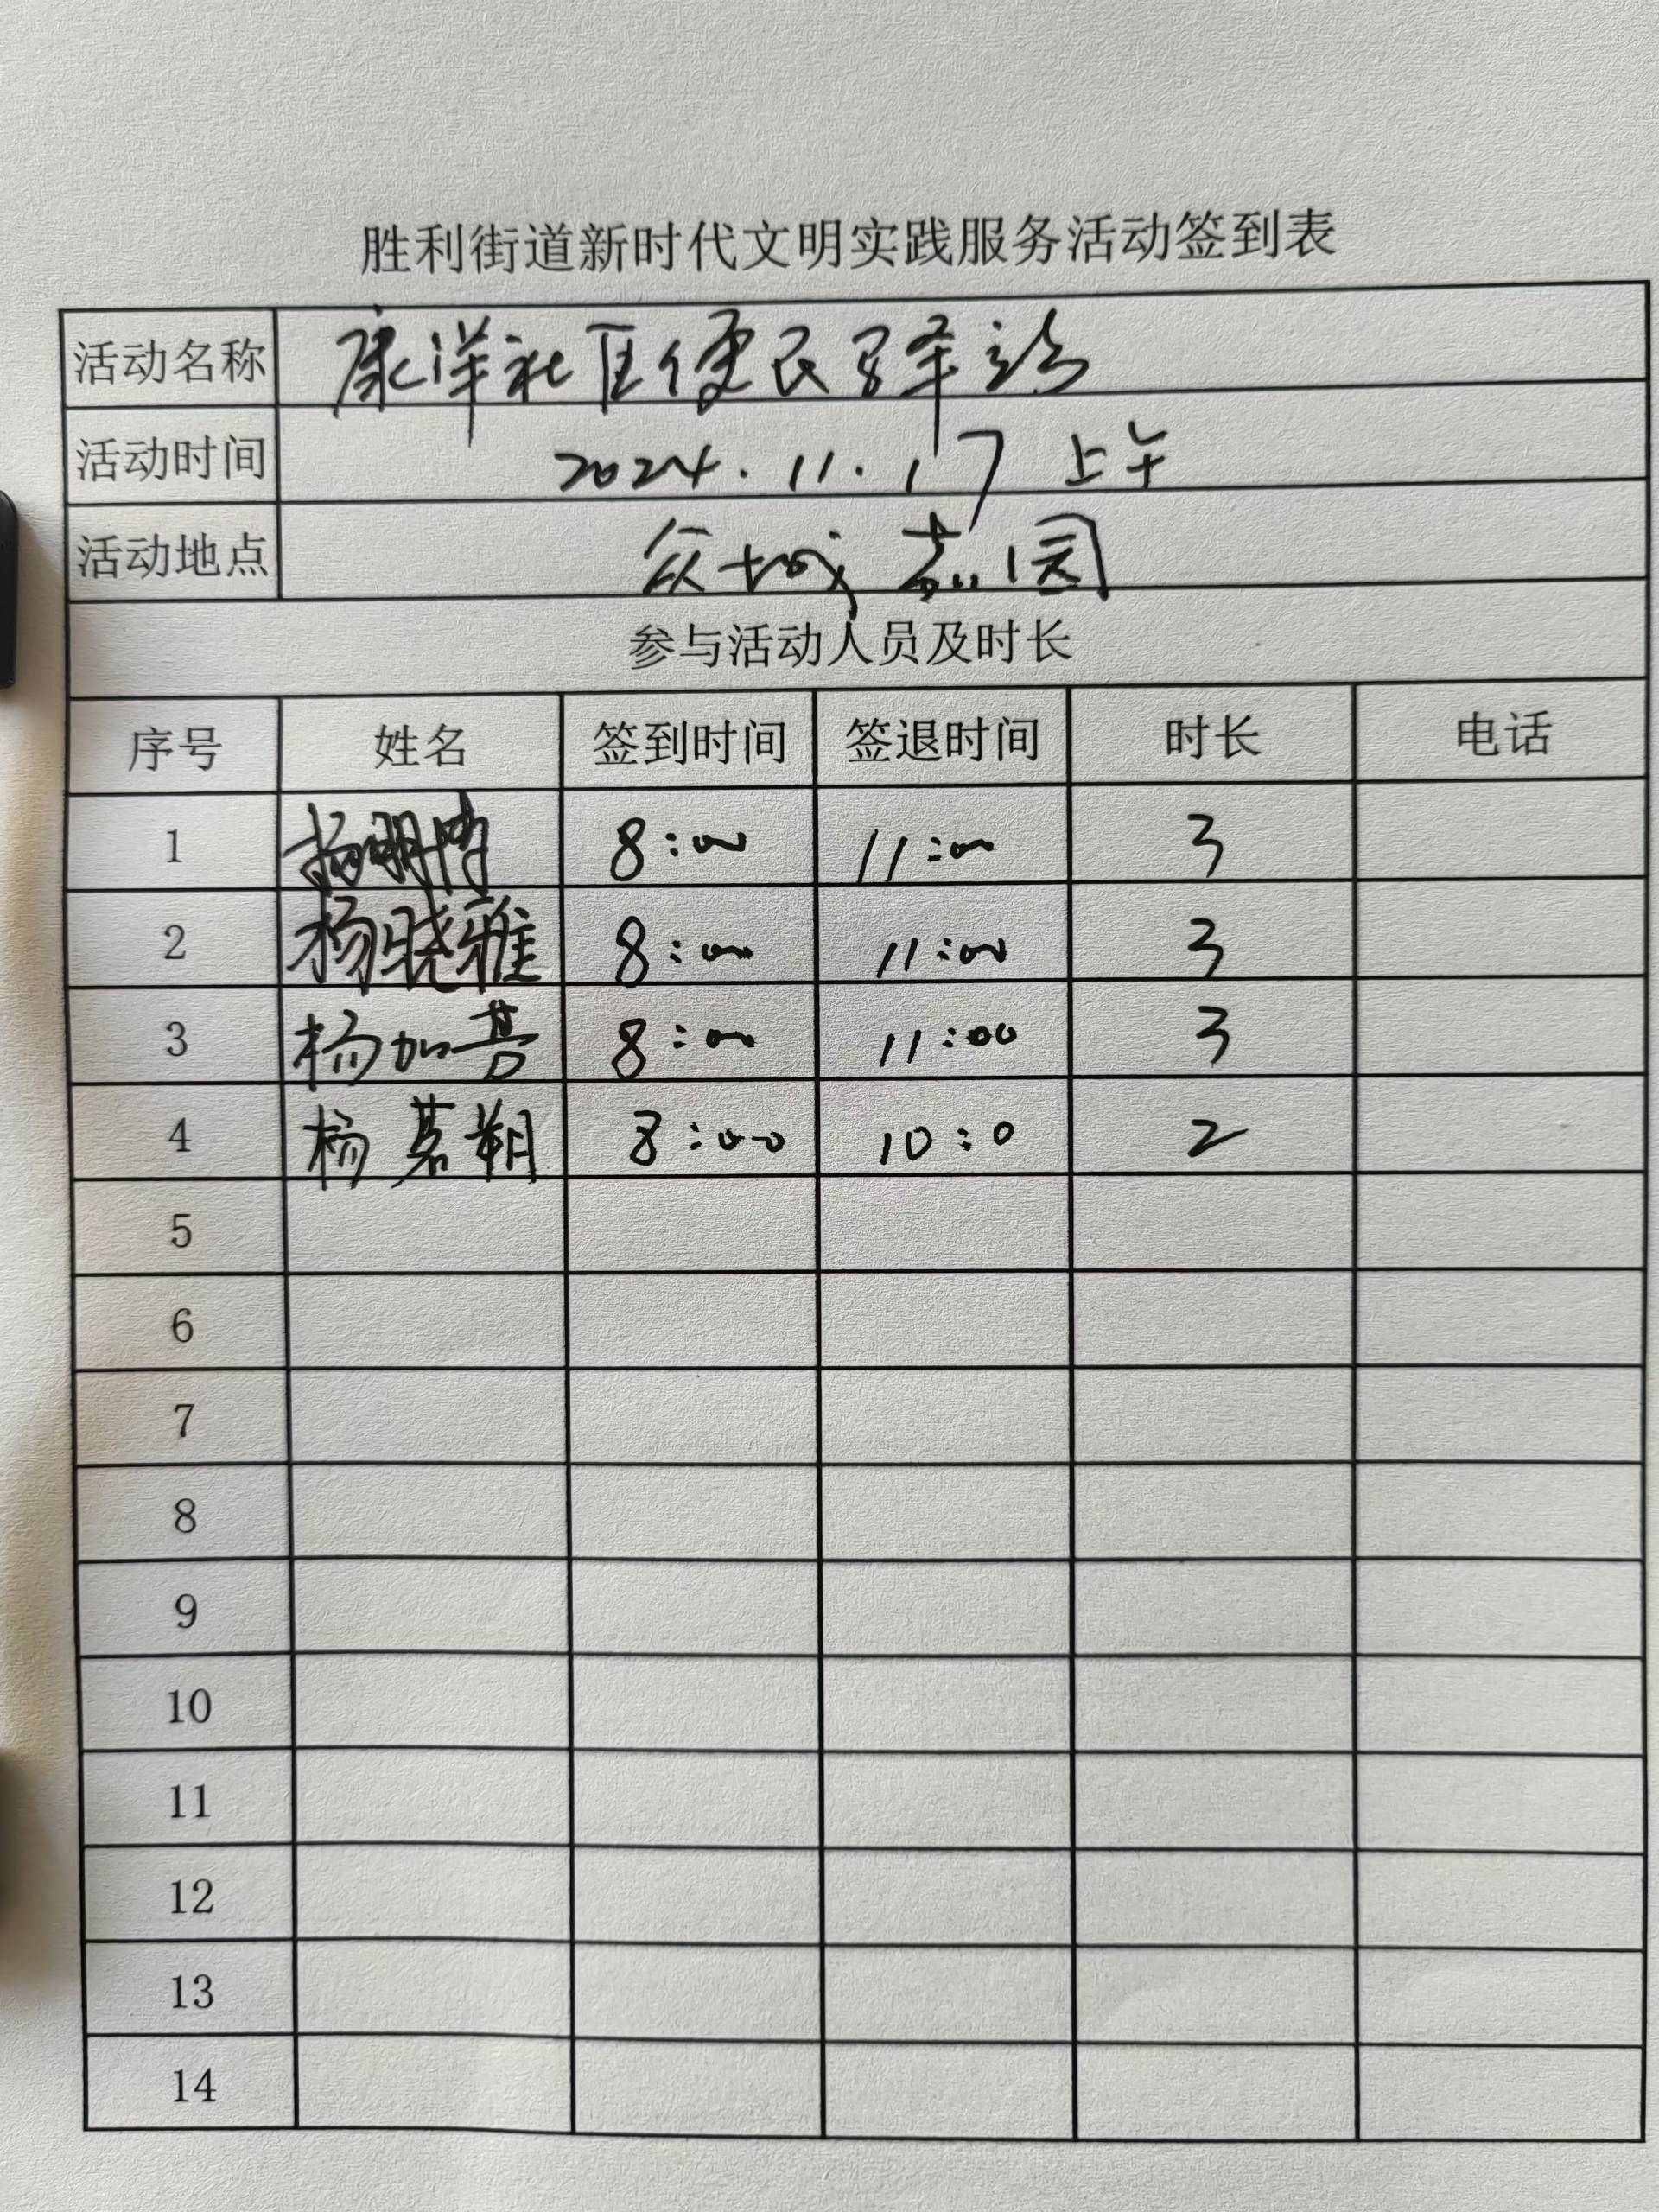 胜利街道新时代文明实践服务活动签到表
活动名称 康洋社区便民驿站
活动时间 2024.11.17 上午
活动地点 众城嘉园
参与活动人员及时长
序号 姓名 签到时间 签退时间 时长 电话
1 杨明博 8:00 11:00 3
2 杨晓雅 8:00 11:00 3
3 杨加 8:00 11:00 3
4 杨慕朝 8:00 10:0 2
5
6
7
8
9
10
11
12
13
14